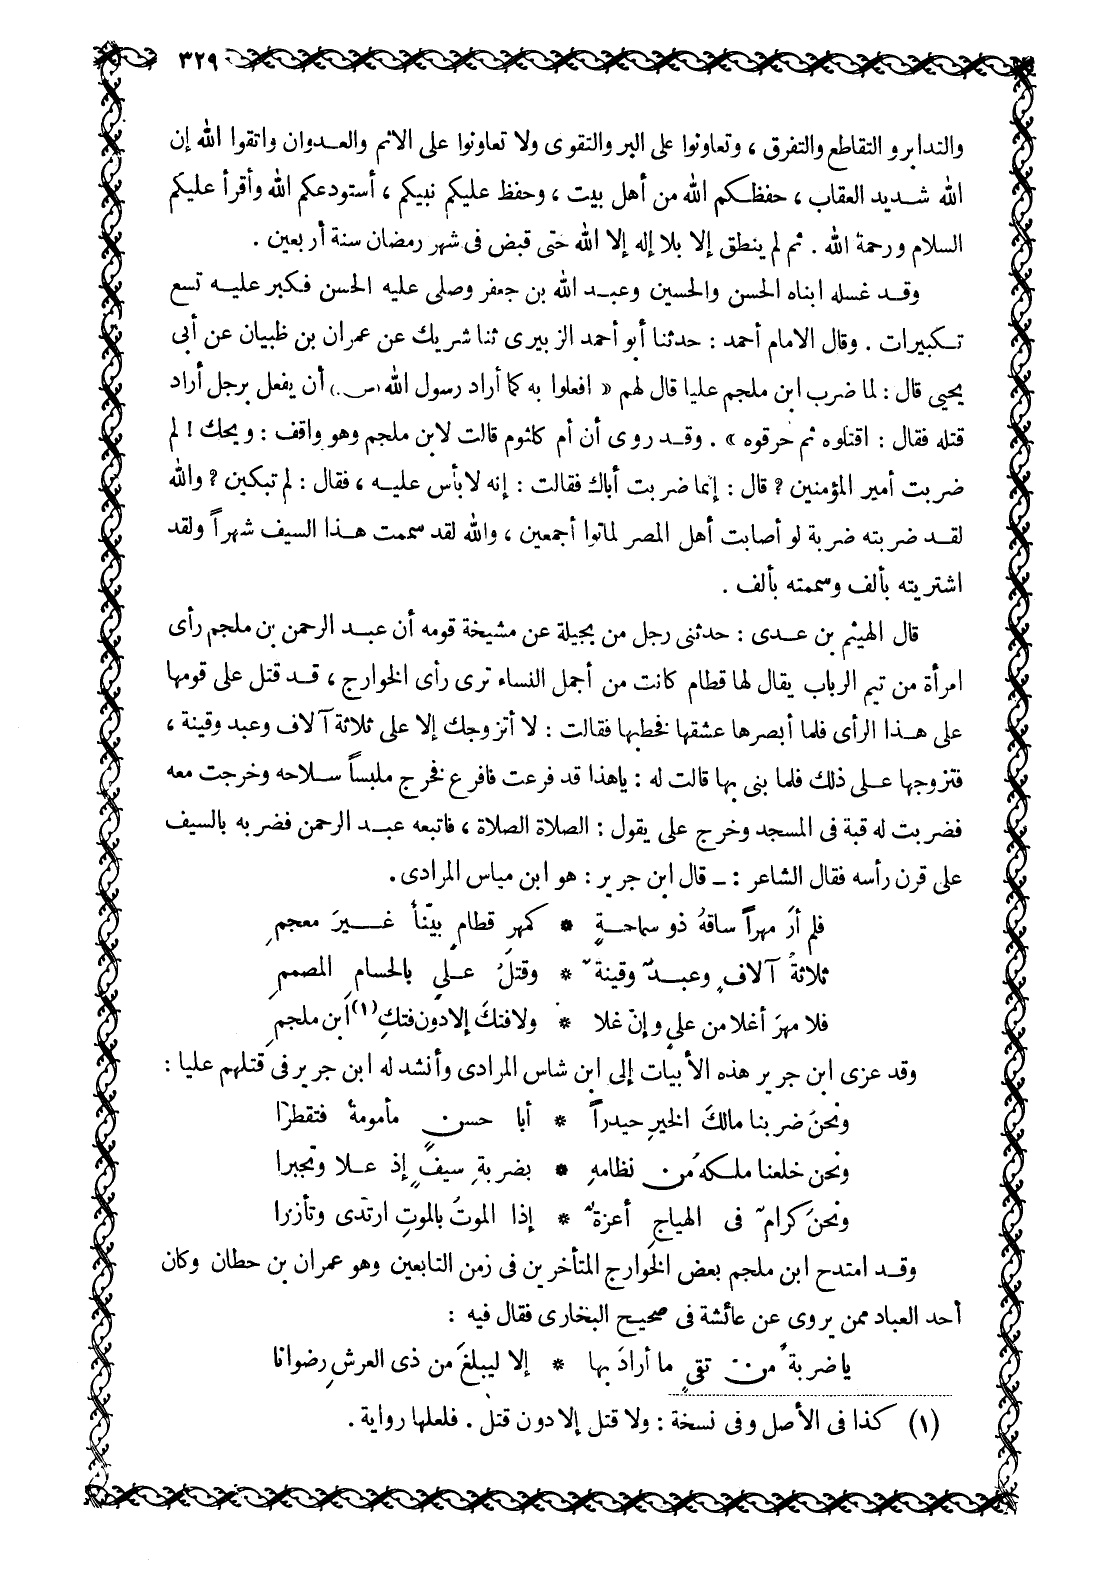 ٣٢٩
والتدابر والتقاطع والتفرق ، وتعاونوا على البر والتقوى ولا تعاونوا على الاثم والعدوان واتقوا الله إن
الله شديد العقاب ، حفظكم الله من أهل بيت ، وحفظ عليكم نبيكم ، أستودعكم الله وأقرأ عليكم
السلام ورحمة الله . ثم لم ينطق إلا بلا إله إلا الله حتى قبض فى شهر رمضان سنة أربعين .
وقد غسله ابناه الحسن والحسين وعبد الله بن جعفر وصلى عليه الحسن فكبر عليه تسع
تكبيرات . وقال الامام أحمد : حدثنا أبو أحمد الزبيرى ثنا شريك عن عمران بن ظبيان عن أبى
يحيى قال : لما ضرب ابن ملجم عليا قال لهم « افعلوا به كما أراد رسول الله (ص.) أن يفعل برجل أراد
قتله فقال : اقتلوه ثم حرقوه » . وقد روى أن أم كلثوم قالت لابن ملجم وهو واقف : ويحك ! لم
ضربت أمير المؤمنين ? قال : إنما ضربت أباك فقالت : إنه لا بأس عليه ، فقال : لم تبكين ? والله
لقد ضربته ضربة لو أصابت أهل المصر لماتوا أجمعين ، والله لقد سممت هذا السيف شهراً ولقد
اشتريته بألف وسممته بألف .
قال الهيثم بن عدى : حدثنى رجل من بجيلة عن مشيخة قومه أن عبد الرحمن بن ملجم رأى
امرأة من تيم الرباب يقال لها قطام كانت من أجمل النساء ترى رأى الخوارج ، قد قتل على قومها
على هذا الرأى فلما أبصرها عشقها فخطبها فقالت : لا أتزوجك إلا على ثلاثة آلاف وعبد وقينة ،
فتزوجها على ذلك فلما بنى بها قالت له : ياهذا قد فرعت فافرع فخرج ملبساً سلاحه وخرجت معه
فضربت له قبة فى المسجد وخرج على يقول : الصلاة الصلاة ، فاتبعه عبد الرحمن فضربه بالسيف
على قرن رأسه فقال الشاعر : ــ قال ابن جرير : هو ابن مياس المرادى .
فلم أرَ مهراً ساقهُ ذو سماحةٍ * كمهرِ قطامٍ بيّناً غيرَ معجمِ
ثلاثةُ آلافٍ وعبدٌ وقينةٌ * وقتلُ علىٍ بالحسامِ المصممِ
فلا مهرَ أغلا من علىٍ وإن غلا * ولا فتكَ إلا دون فتكِ (١) ابن ملجمِ
وقد عزى ابن جرير هذه الأبيات إلى ابن شاس المرادى وأنشد له ابن جرير فى قتلهم عليا :
ونحنُ ضربنا مالكَ الخيرِ حيدراً * أبا حسنٍ مأمومةً فتقطرا
ونحن خلعنا ملكهُ من نظامهِ * بضربةِ سيفٍ إذ علا وتجبرا
ونحنُ كرامٌ فى الهياجِ أعزةٌ * إذا الموتُ بالموتِ ارتدى وتأزرا
وقد امتدح ابن ملجم بعض الخوارج المتأخرين فى زمن التابعين وهو عمران بن حطان وكان
أحد العباد ممن يروى عن عائشة فى صحيح البخارى فقال فيه :
يا ضربةً من تقىٍ ما أرادَ بها * إلا ليبلغَ من ذى العرشِ رضوانا
(١) كذا فى الأصل وفى نسخة : ولا قتل إلا دون قتل . فلعلها رواية .